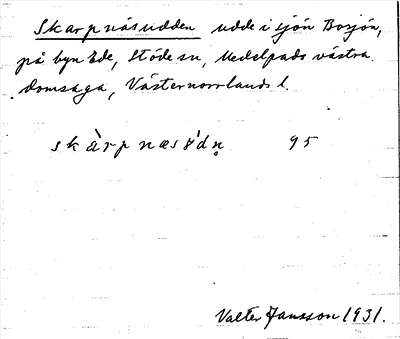 Skarpnäsudden udde i sjön Bosjön,
på byn Ede, Stöde sn, Medelpads västra
domsaga, Västernorrlands l.
skàrpnæs 95
Valter Jansson 1931.